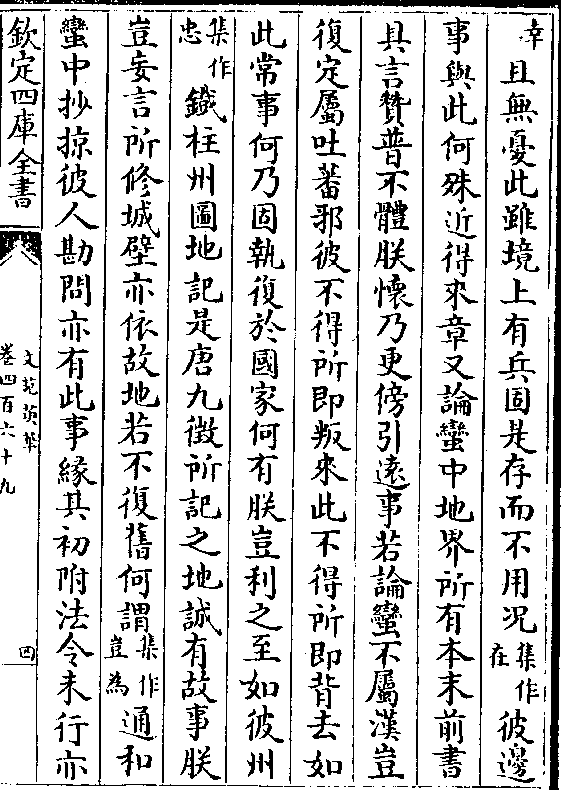 幸且無憂此雖境上有兵固是存而不用况集作在彼邊
事與此何殊近得來章又論蠻中地界所有本末前書
具言贊普不體朕懷乃更傍引遠事若論蠻不屬漢豈
復定屬吐蕃邪彼不得所即叛來此不得所即背去如
此常事何乃固執復於國家何有朕豈利之至如彼州
集作忠鐵柱州圖地記是唐九徵所記之地誠有故事朕
豈妄言所修城壁亦依故地若不復舊何謂集作豈為通和
蠻中抄掠彼人勘問亦有此事緣其初附法令未行亦
欽定四庫全書
文苑英華
卷四百六十九
四